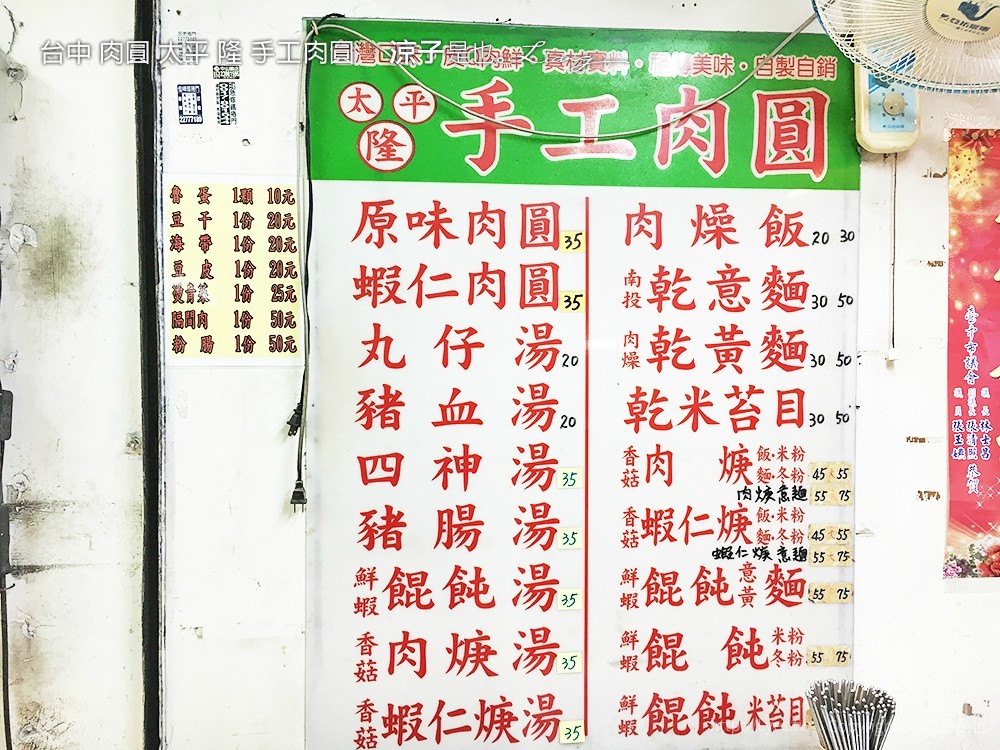 台中 肉圓 太平 隆 手工肉圓
皮Q肉鮮・真材實料・祖傳美味・自製自銷
太平隆 手工肉圓
魯蛋 1顆 10元
豆干 1份 20元
海帶 1份 20元
豆皮 1份 20元
燙青菜 1份 25元
隔間肉 1份 50元
粉腸 1份 50元
原味肉圓 35
蝦仁肉圓 35
丸仔湯 20
豬血湯 20
四神湯 35
豬腸湯 35
鮮蝦餛飩湯 35
香菇肉焿湯 35
香菇蝦仁焿湯 35
肉燥飯 20 30
南投乾意麵 30 50
肉燥乾黃麵 30 50
乾米苔目 30 50
香菇肉焿 飯・米粉 麵・冬粉 45 55
肉焿意麵 55 75
香菇蝦仁焿 飯・米粉 麵・冬粉 45 55
蝦仁焿意麵 55 75
鮮蝦餛飩意黃麵 55 75
鮮蝦餛飩 米粉 冬粉 55 75
鮮蝦餛飩米苔目
臺中市議會
議長 林士昌
副議長 張清照
議員 張玉嬿
恭賀